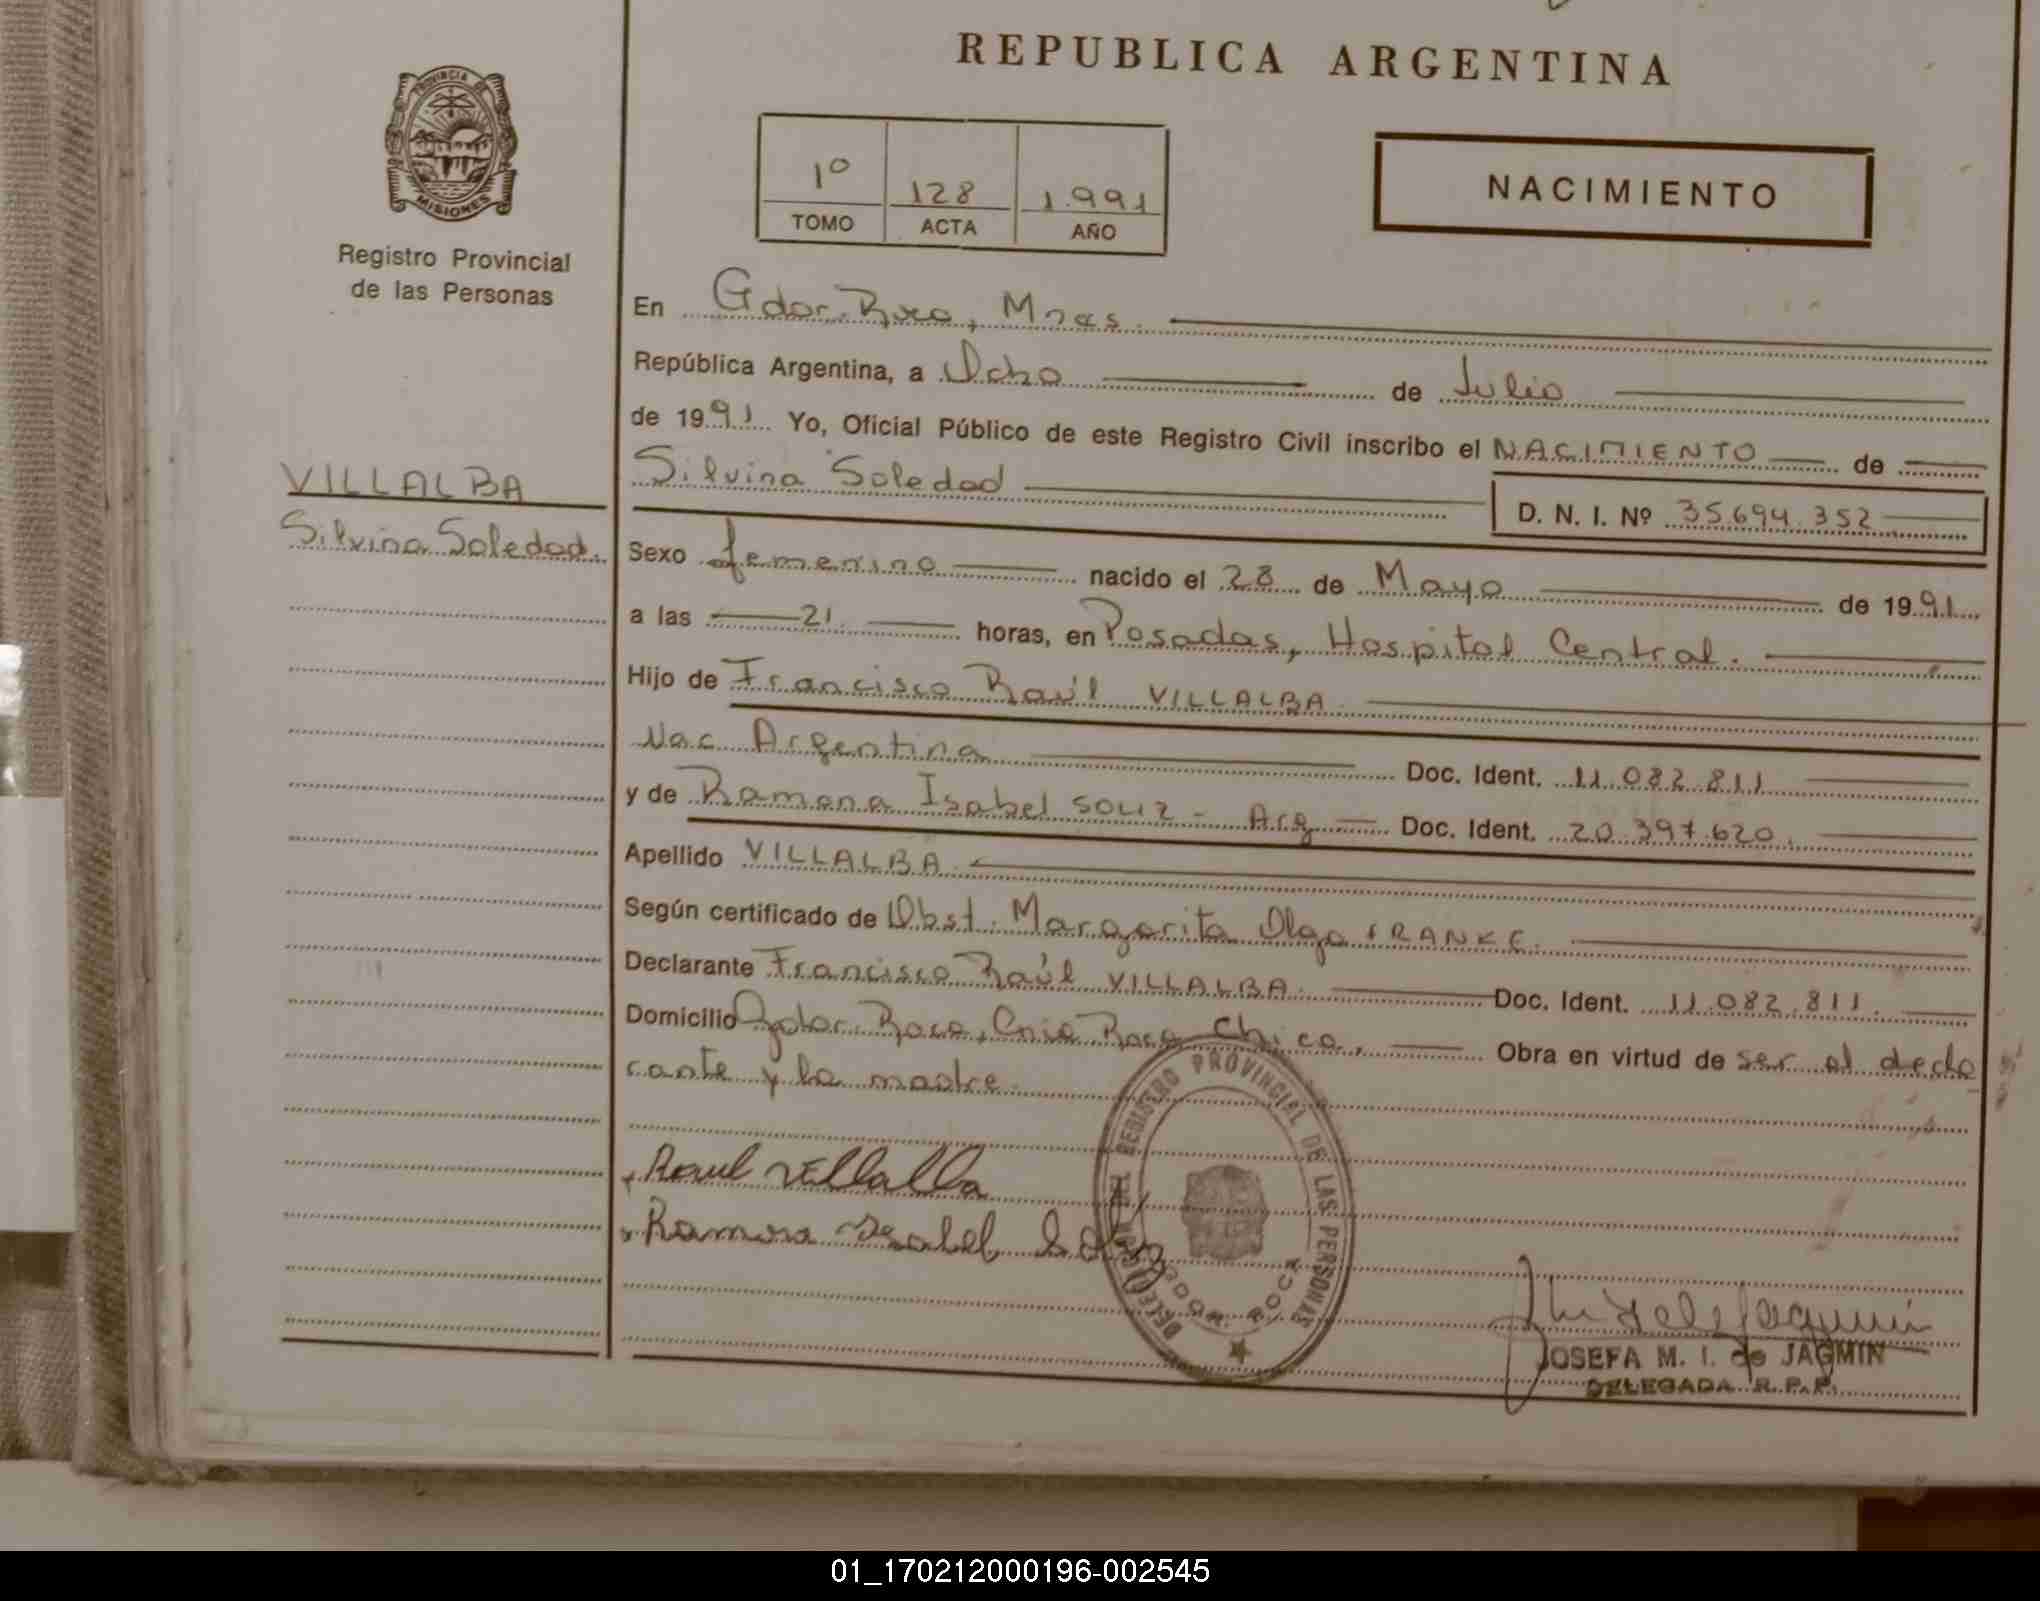 REPUBLICA ARGENTINA
PROVINCIA DE
MISIONES
Registro Provincial
de las Personas
1º 128 1.991
TOMO ACTA AÑO
NACIMIENTO
En Gdor. Roca, Mnes.
República Argentina, a Ocho de Julio
de 1991. Yo, Oficial Público de este Registro Civil inscribo el NACIMIENTO de
VILLALBA
Silvina Soledad
D. N. I. Nº 35.694.352
Silvina Soledad.
Sexo femenino nacido el 28 de Mayo de 1991
a las 21 horas, en Posadas, Hospital Central.
Hijo de Francisco Raúl VILLALBA
Nac. Argentina Doc. Ident. 11.082.811
y de Ramona Isabel SOLIZ - Arg Doc. Ident. 20.397.620.
Apellido VILLALBA.
Según certificado de Obst. Margarita Olga FRANKE.
Declarante Francisco Raúl VILLALBA. Doc. Ident. 11.082.811.
Domicilio Gdor. Roca, Cnia Roca Chica. Obra en virtud de ser el decla
rante y la madre.
Raul Villalba
Ramona Isabel
DELEGACION DEL REGISTRO PROVINCIAL DE LAS PERSONAS
ROCA
JOSEFA M. I. de JAGMIN
DELEGADA R.P.P.
01_170212000196-002545